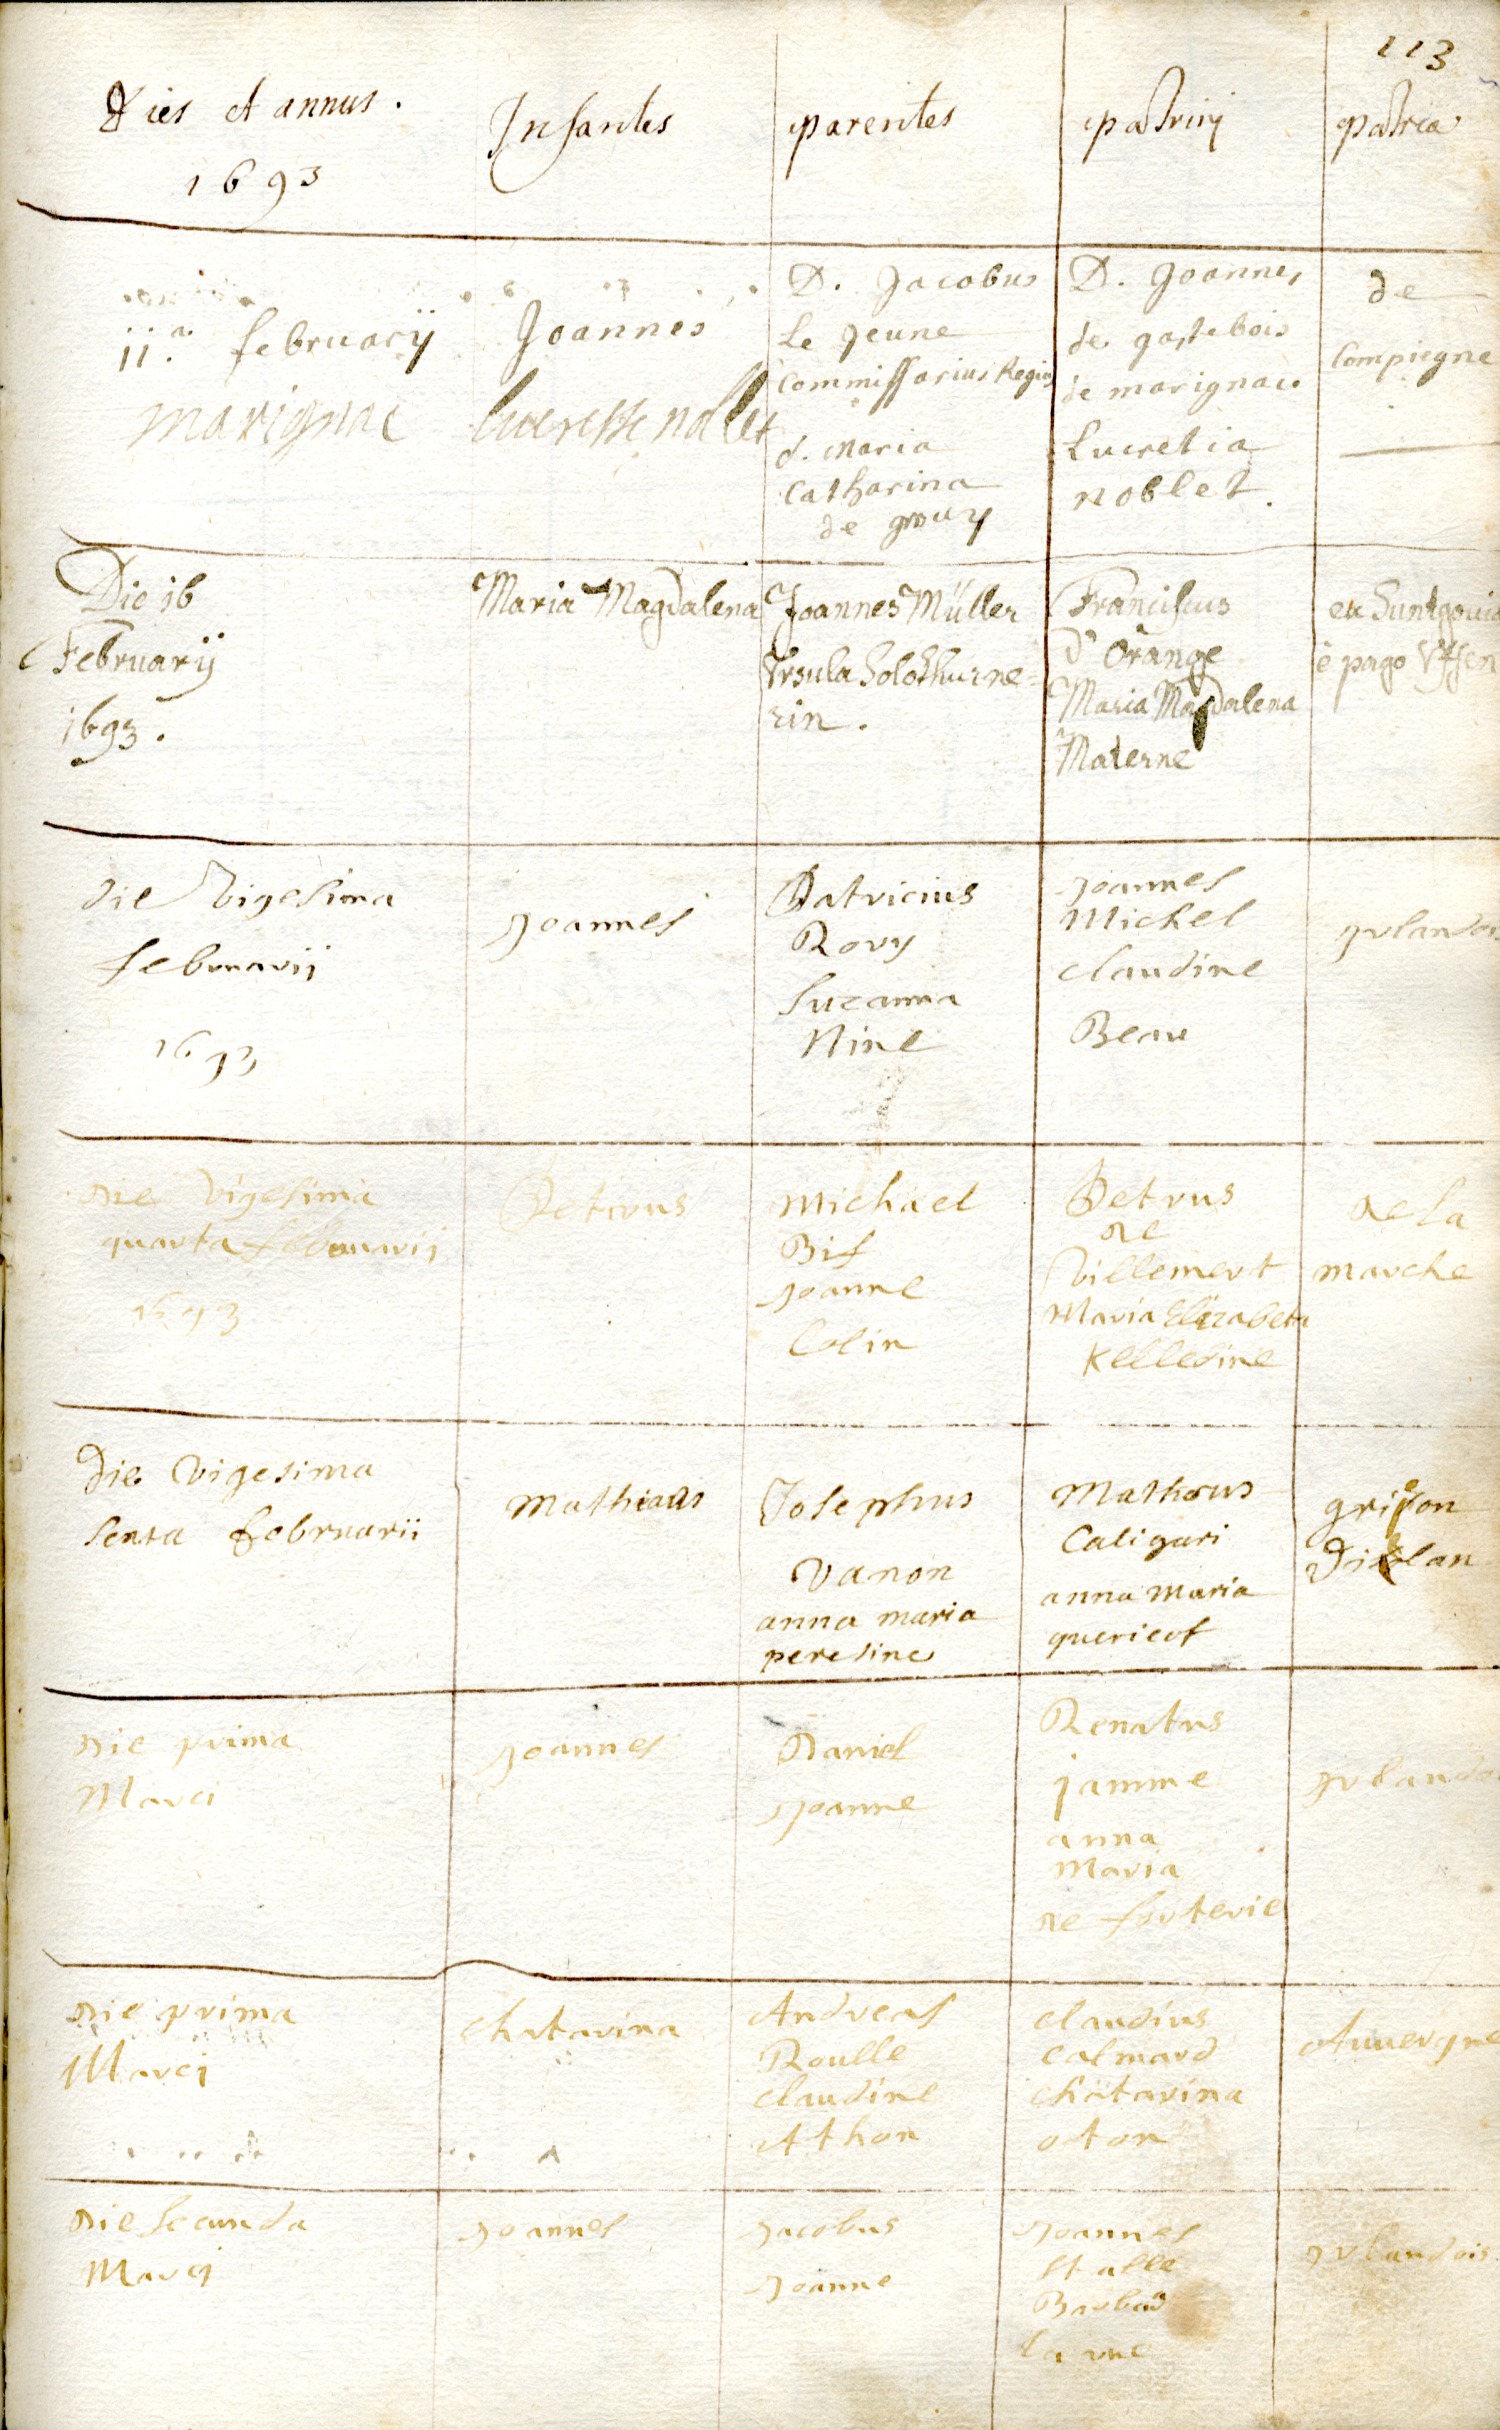 113
Dies et annus.
1693
Infantes
parentes
patrinj
patria
11.a februarij
Joannes
D. Jacobus
Le Jeune
Commissarius Regius
d. Maria
Catharina
de grouy
D. Joannes
de gastebois
de marignac
Lucretia
noblet.
de
Compiegne
marignac
lucresse noblet
Die 16
Februarij
1693.
Maria Magdalena
Joannes Müller
Vrsula Solothurne=
rin.
Franciscus
d'Orange
Maria Magdalena
Materne
ex Suntgovia
è pago
die vigesima
februarii
1693
Joannes
Patricius
Rory
Suzanna
Nine
Joannes
Michel
claudine
Beau
Irlandois
die vigesima
quarta februarij
1693
Petrus
Michael
Bif
Joanne
Colin
Petrus
de
Villemert
Maria Elizabeta
Kelledine
de la
marche
Die vigesima
sexta februarii
Mathiaas
Josephus
vanon
anna maria
peresine
Matheus
Caligari
anna maria
querieuf
grison
die prima
Marci
Joannes
Daniel
Joanne
Renatus
jamme
anna
Maria
de forterie
Irlandois
die prima
Marcj
Chatarina
Andreas
Roulle
claudine
Athon
claudius
calmard
Chatarina
oton
Auuergne
die secunda
Marcj
Joannes
Jacobus
Joanne
Joannes
Stalle
la rue
Irlandois